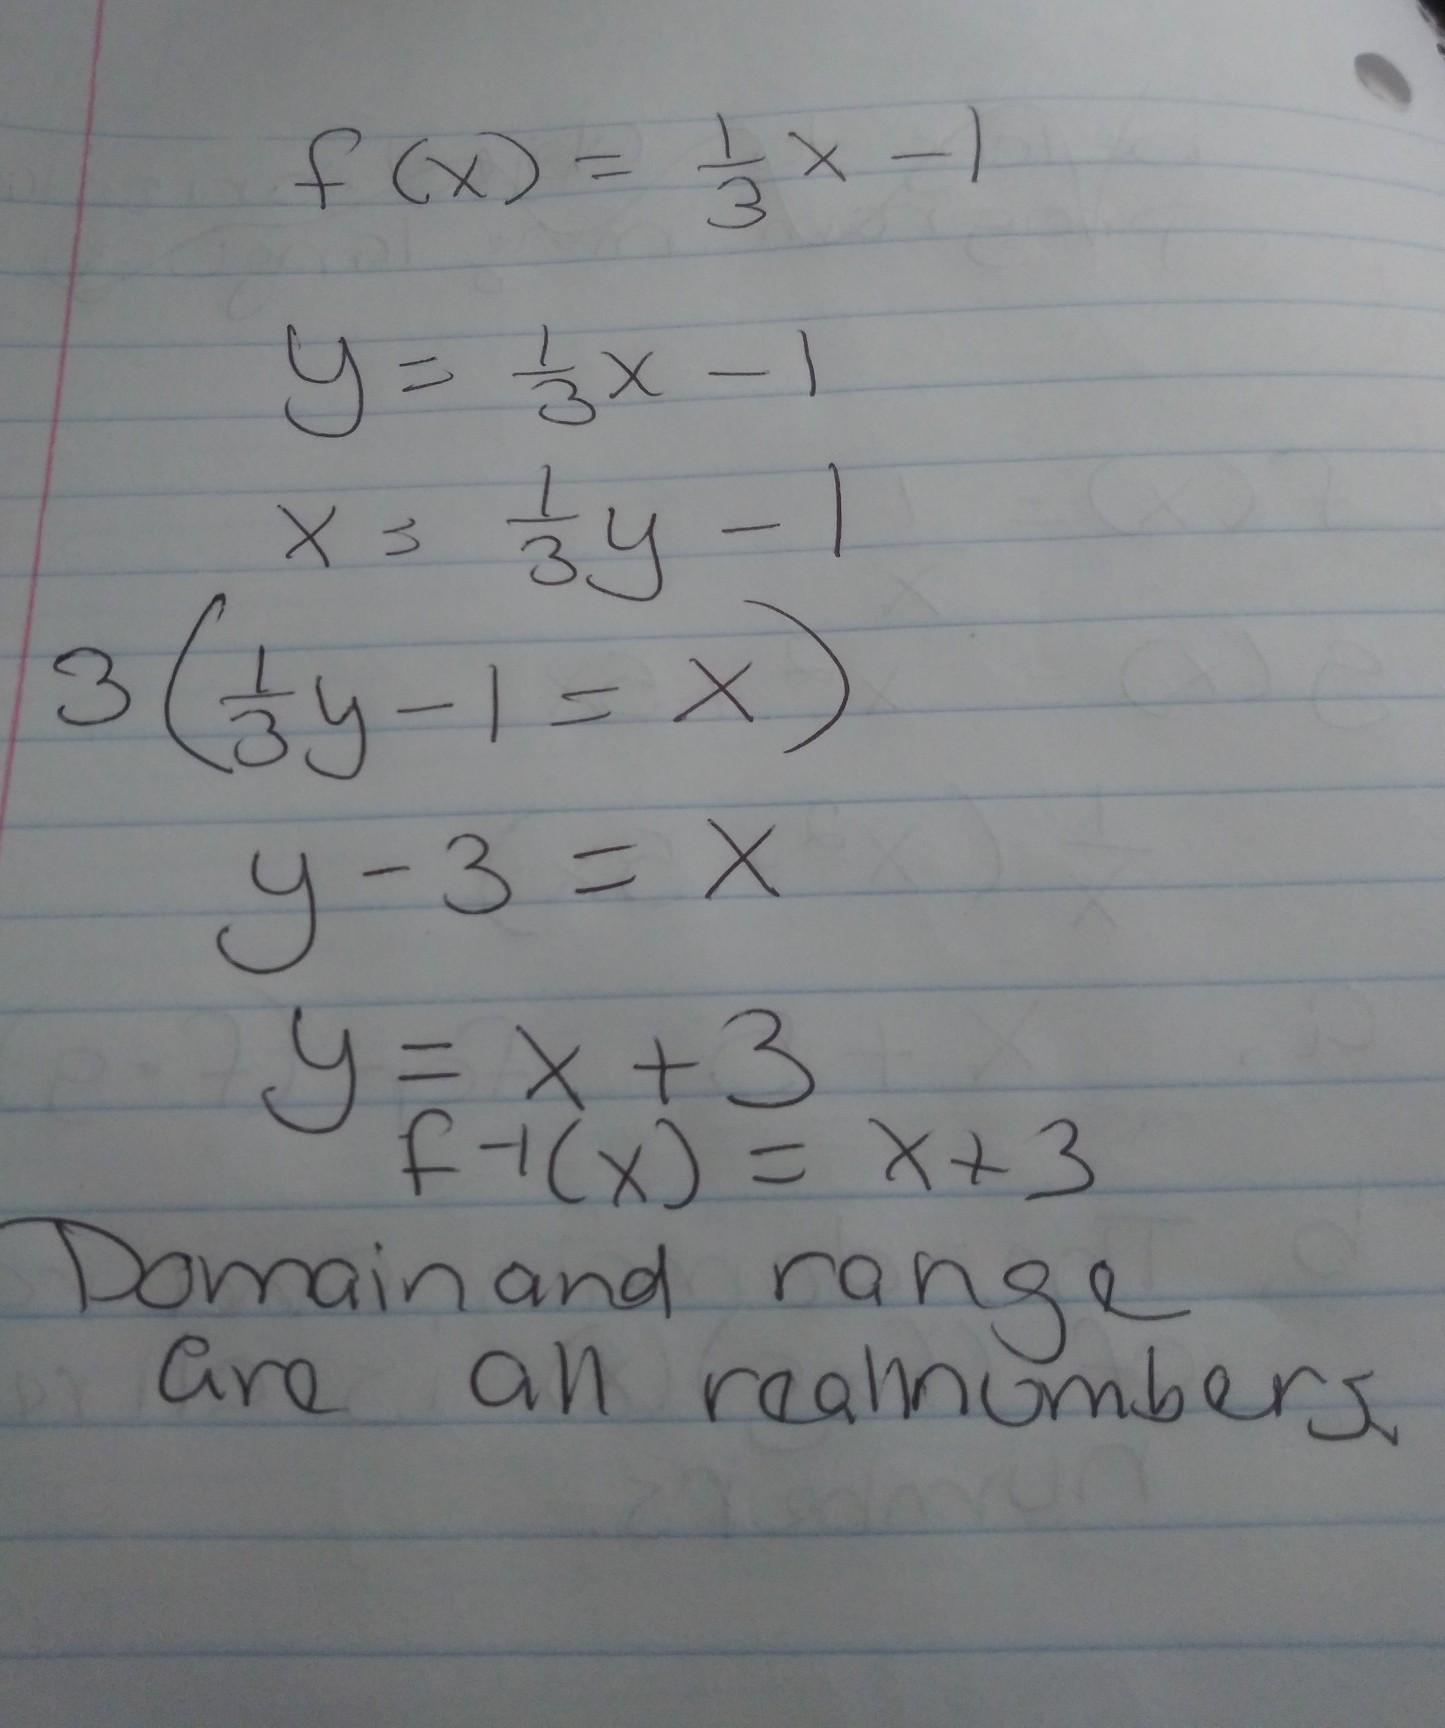 f(x) = 1/3 x - 1
y = 1/3 x - 1
x = 1/3 y - 1
3(1/3 y - 1 = x)
y - 3 = x
y = x + 3
f-1(x) = x + 3
Domain and range
are all real numbers.